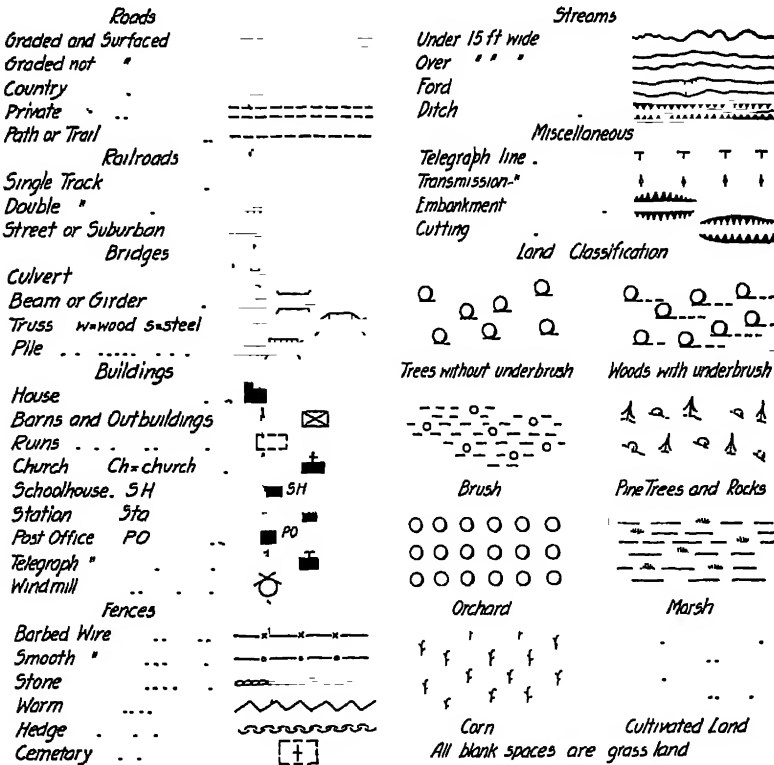 Roads
Graded and Surfaced
Graded not "
Country
Private
Path or Trail
Railroads
Single Track
Double "
Street or Suburban
Bridges
Culvert
Beam or Girder
Truss w=wood s=steel
Pile
Buildings
House
Barns and Outbuildings
Ruins
Church Ch=church
Schoolhouse. SH SH
Station Sta
Post Office PO PO
Telegraph "
Windmill
Fences
Barbed Wire
Smooth "
Stone
Worm
Hedge
Cemetary
Streams
Under 15 ft wide
Over " " "
Ford
Ditch
Miscellaneous
Telegraph line
Transmission "
Embankment
Cutting
Land Classification
Trees without underbrush Woods with underbrush
Brush Pine Trees and Rocks
Orchard Marsh
Corn Cultivated Land
All blank spaces are grass land